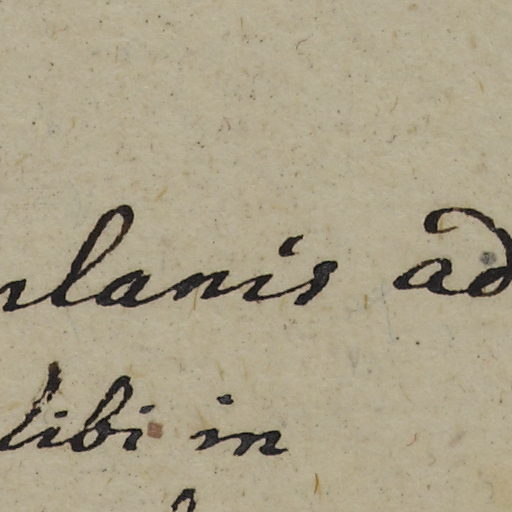 nlanis ad
libi in